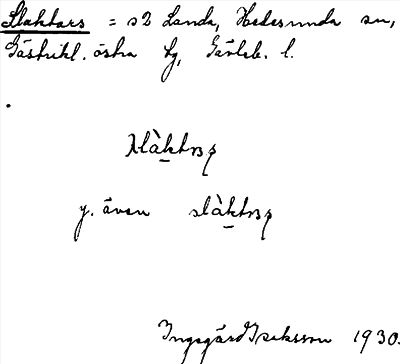 Slaktars = s2 Landa, Hedesunda sn,
Gästrikl. östra tg, Gävleb. l.
slàktaṣ
y. även slàktaṣ
Ingegärd Isaksson 1930.